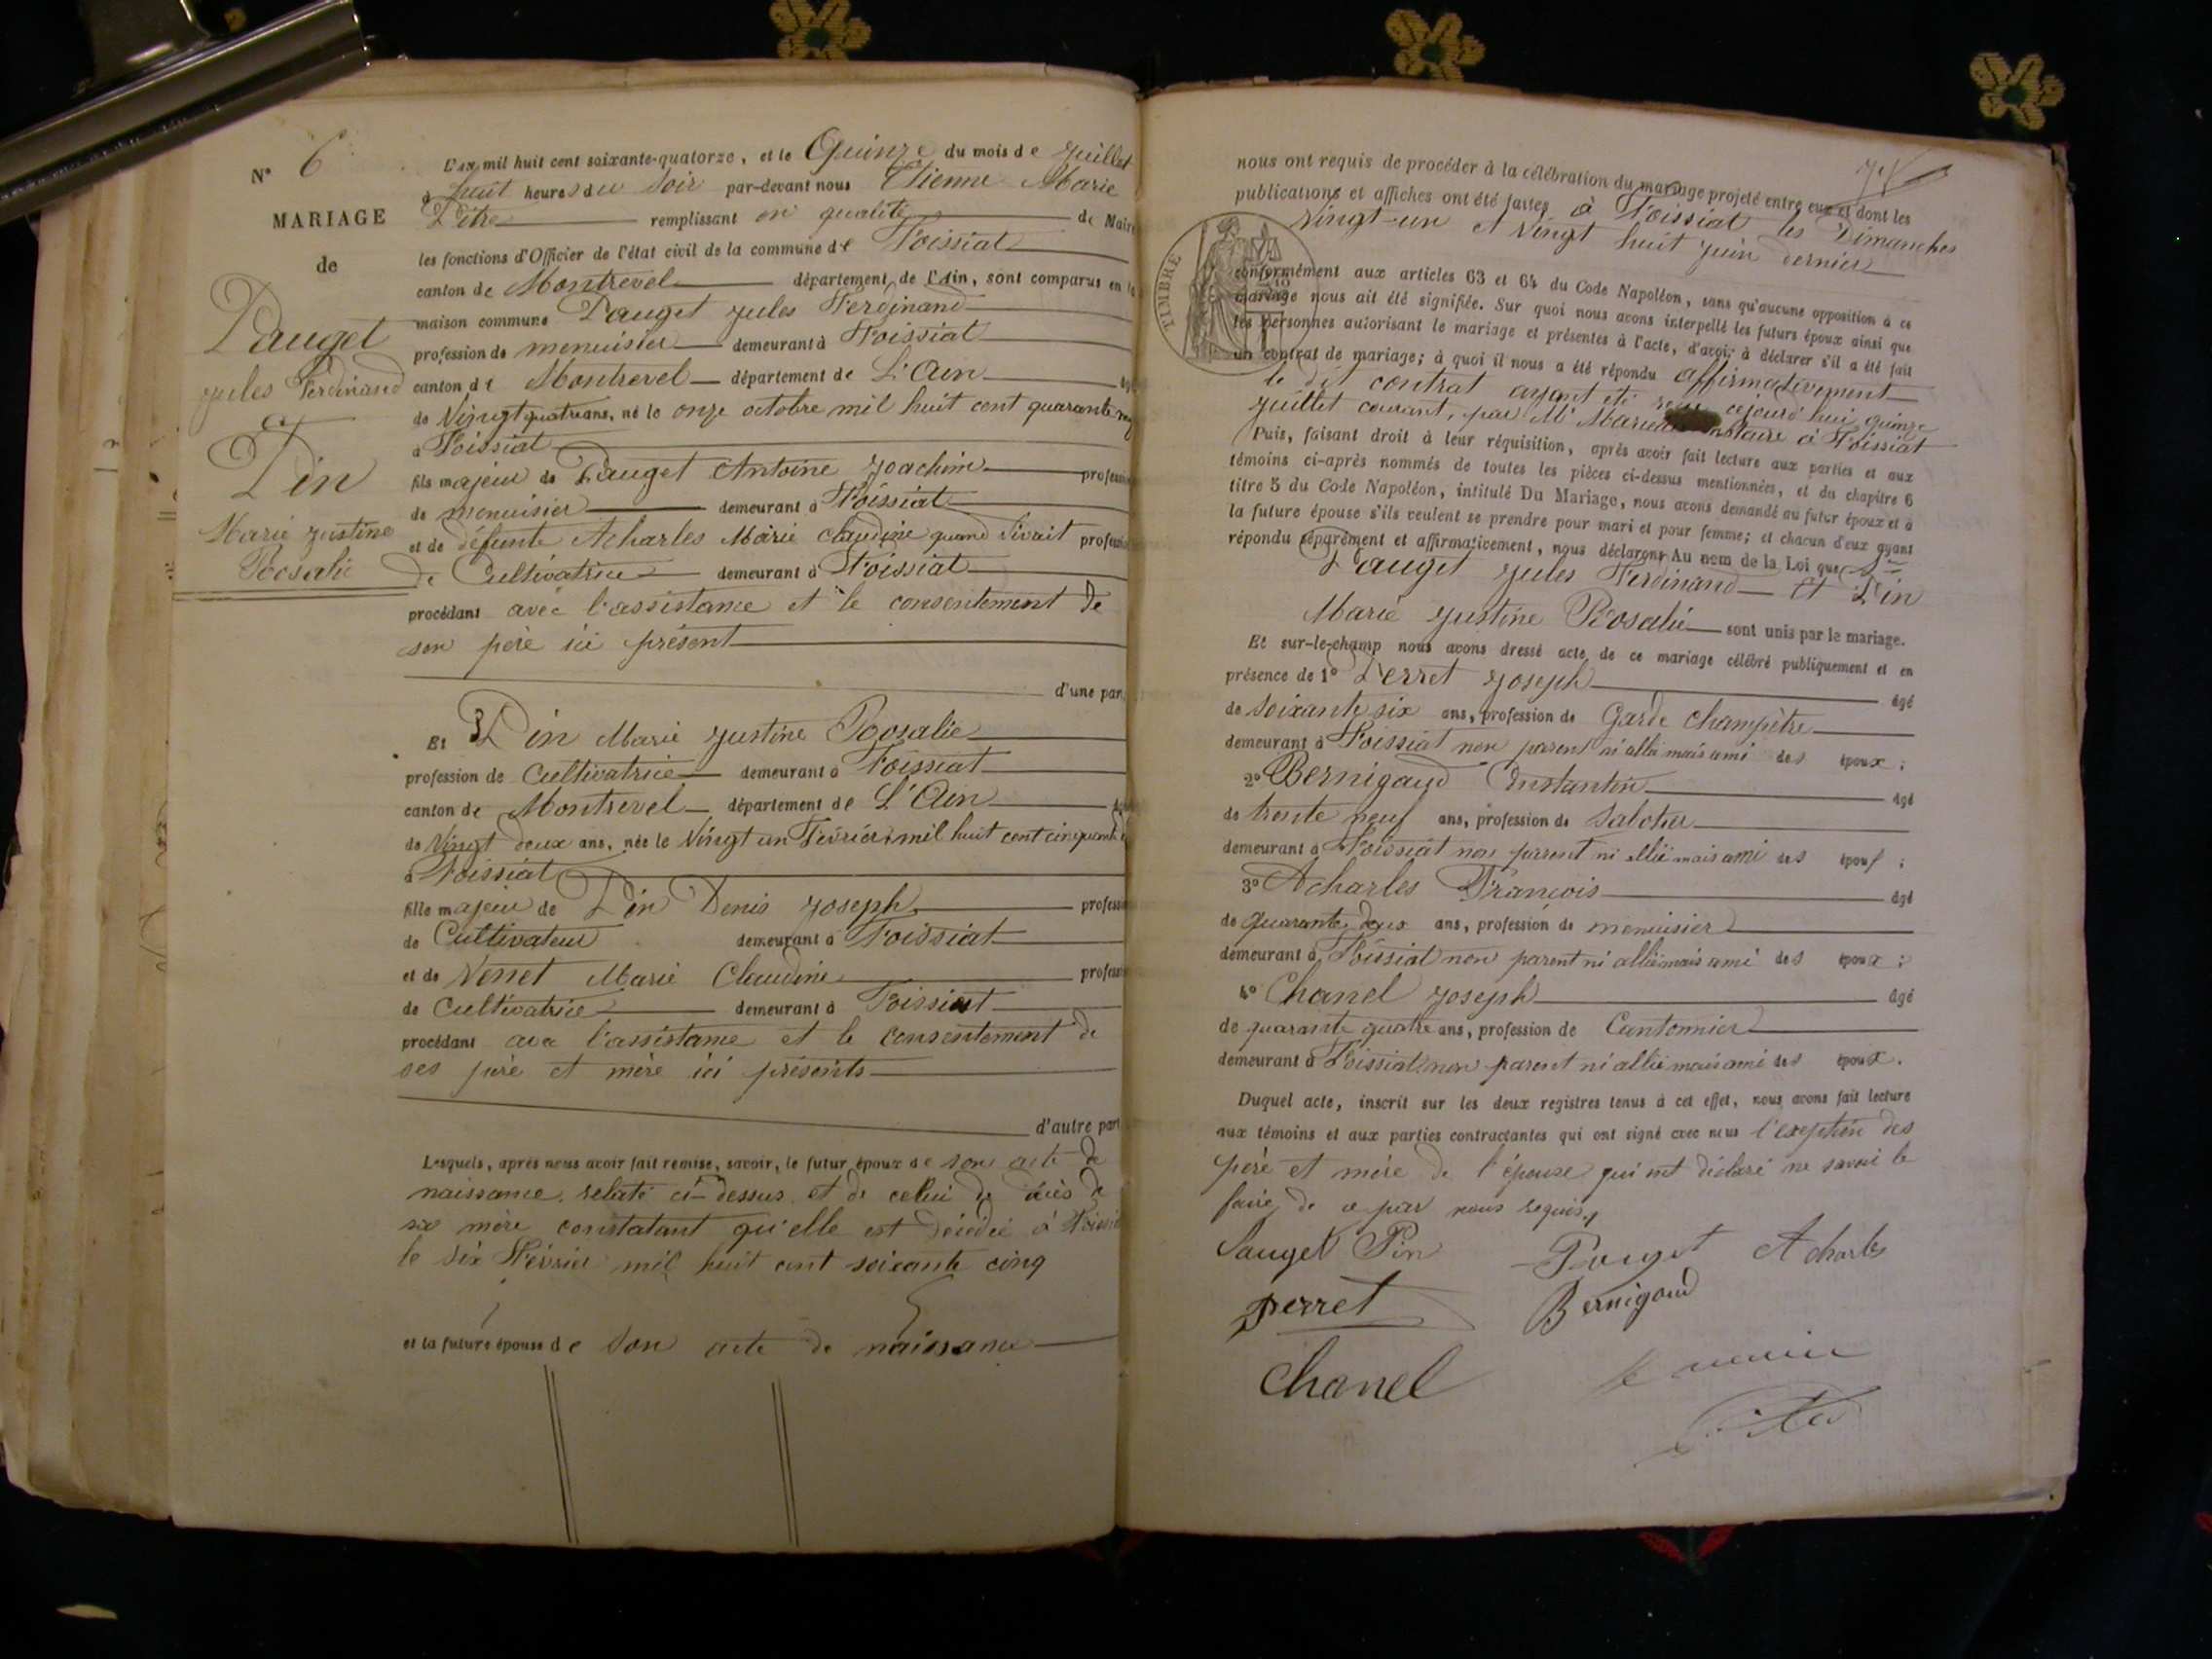 N° 6
MARIAGE
de
Pauget
Jules Ferdinand
et
Pin
Marie Justine
Rosalie
L'an mil huit cent soixante-quatorze, et le Quinze du mois de Juillet
à huit heures du Soir par-devant nous Etienne Marie
remplissant en qualité de Maire
les fonctions d'Officier de l'état civil de la commune de Foissiat
canton de Montrevel département de l'Ain, sont comparus en la
maison commune Pauget Jules Ferdinand
profession de menuisier demeurant à Foissiat
canton de Montrevel département de L'Ain
de Vingt quatre ans, né le onze octobre mil huit cent quarante
à Foissiat
fils majeur de Pauget Antoine Joachim profession
de menuisier demeurant à Foissiat
et de défunte Acharles Marie Claudine quand vivait profession
de Cultivatrice demeurant à Foissiat
procédant avec l'assistance et le consentement de
son père ici présent
d'une part
Et Pin Marie Justine Rosalie
profession de Cultivatrice demeurant à Foissiat
canton de Montrevel département de L'Ain
de Vingt deux ans, née le Vingt un Février mil huit cent cinquante
à Foissiat
fille majeure de Pin Denis Joseph profession
de Cultivateur demeurant à Foissiat
et de Venet Marie Claudine profession
de Cultivatrice demeurant à Foissiat
procédant avec l'assistance et le consentement de
ses père et mère ici présents
d'autre part
Lesquels, après nous avoir fait remise, savoir, le futur époux de son acte de
naissance relaté ci-dessus et de celui de décès de
sa mère constatant qu'elle est décédée à Foissiat
le six Février mil huit cent soixante cinq
et la future épouse de son acte de naissance
nous ont requis de procéder à la célébration du mariage projeté entre eux et dont les
publications et affiches ont été faites à Foissiat les Dimanches
Vingt-un et Vingt huit juin dernier
TIMBRE
conformément aux articles 63 et 64 du Code Napoléon, sans qu'aucune opposition à ce
mariage nous ait été signifiée. Sur quoi nous avons interpellé les futurs époux ainsi que
les personnes autorisant le mariage et présentes à l'acte, d'avoir à déclarer s'il a été fait
un contrat de mariage; à quoi il nous a été répondu affirmativement
le dit contrat ayant été reçu cejourd'hui quinze
juillet courant, par Me notaire à Foissiat
Puis, faisant droit à leur réquisition, après avoir fait lecture aux parties et aux
témoins ci-après nommés de toutes les pièces ci-dessus mentionnées, et du chapitre 6
titre 5 du Code Napoléon, intitulé Du Mariage, nous avons demandé au futur époux et à
la future épouse s'ils veulent se prendre pour mari et pour femme; et chacun d'eux ayant
répondu séparément et affirmativement, nous déclarons Au nom de la Loi que
Pauget Jules Ferdinand et Pin
Marie Justine Rosalie sont unis par le mariage.
Et sur-le-champ nous avons dressé acte de ce mariage célébré publiquement et en
présence de 1° Perret Joseph âgé
de soixante six ans, profession de Garde champêtre
demeurant à Foissiat non parent ni allié mais ami des époux;
2° Bernigaud Constantin âgé
de trente neuf ans, profession de Sabotier
demeurant à Foissiat non parent ni allié mais ami des époux;
3° Acharles François âgé
de quarante deux ans, profession de menuisier
demeurant à Foissiat non parent ni allié mais ami des époux;
4° Chanel Joseph âgé
de quarante quatre ans, profession de Cantonnier
demeurant à Foissiat non parent ni allié mais ami des époux.
Duquel acte, inscrit sur les deux registres tenus à cet effet, nous avons fait lecture
aux témoins et aux parties contractantes qui ont signé avec nous l'exeption des
père et mère de l'épouse qui ont déclaré ne savoir le
faire de ce par nous requis
Pauget Pin Pauget Acharles
perret Bernigaud
Chanel le maire